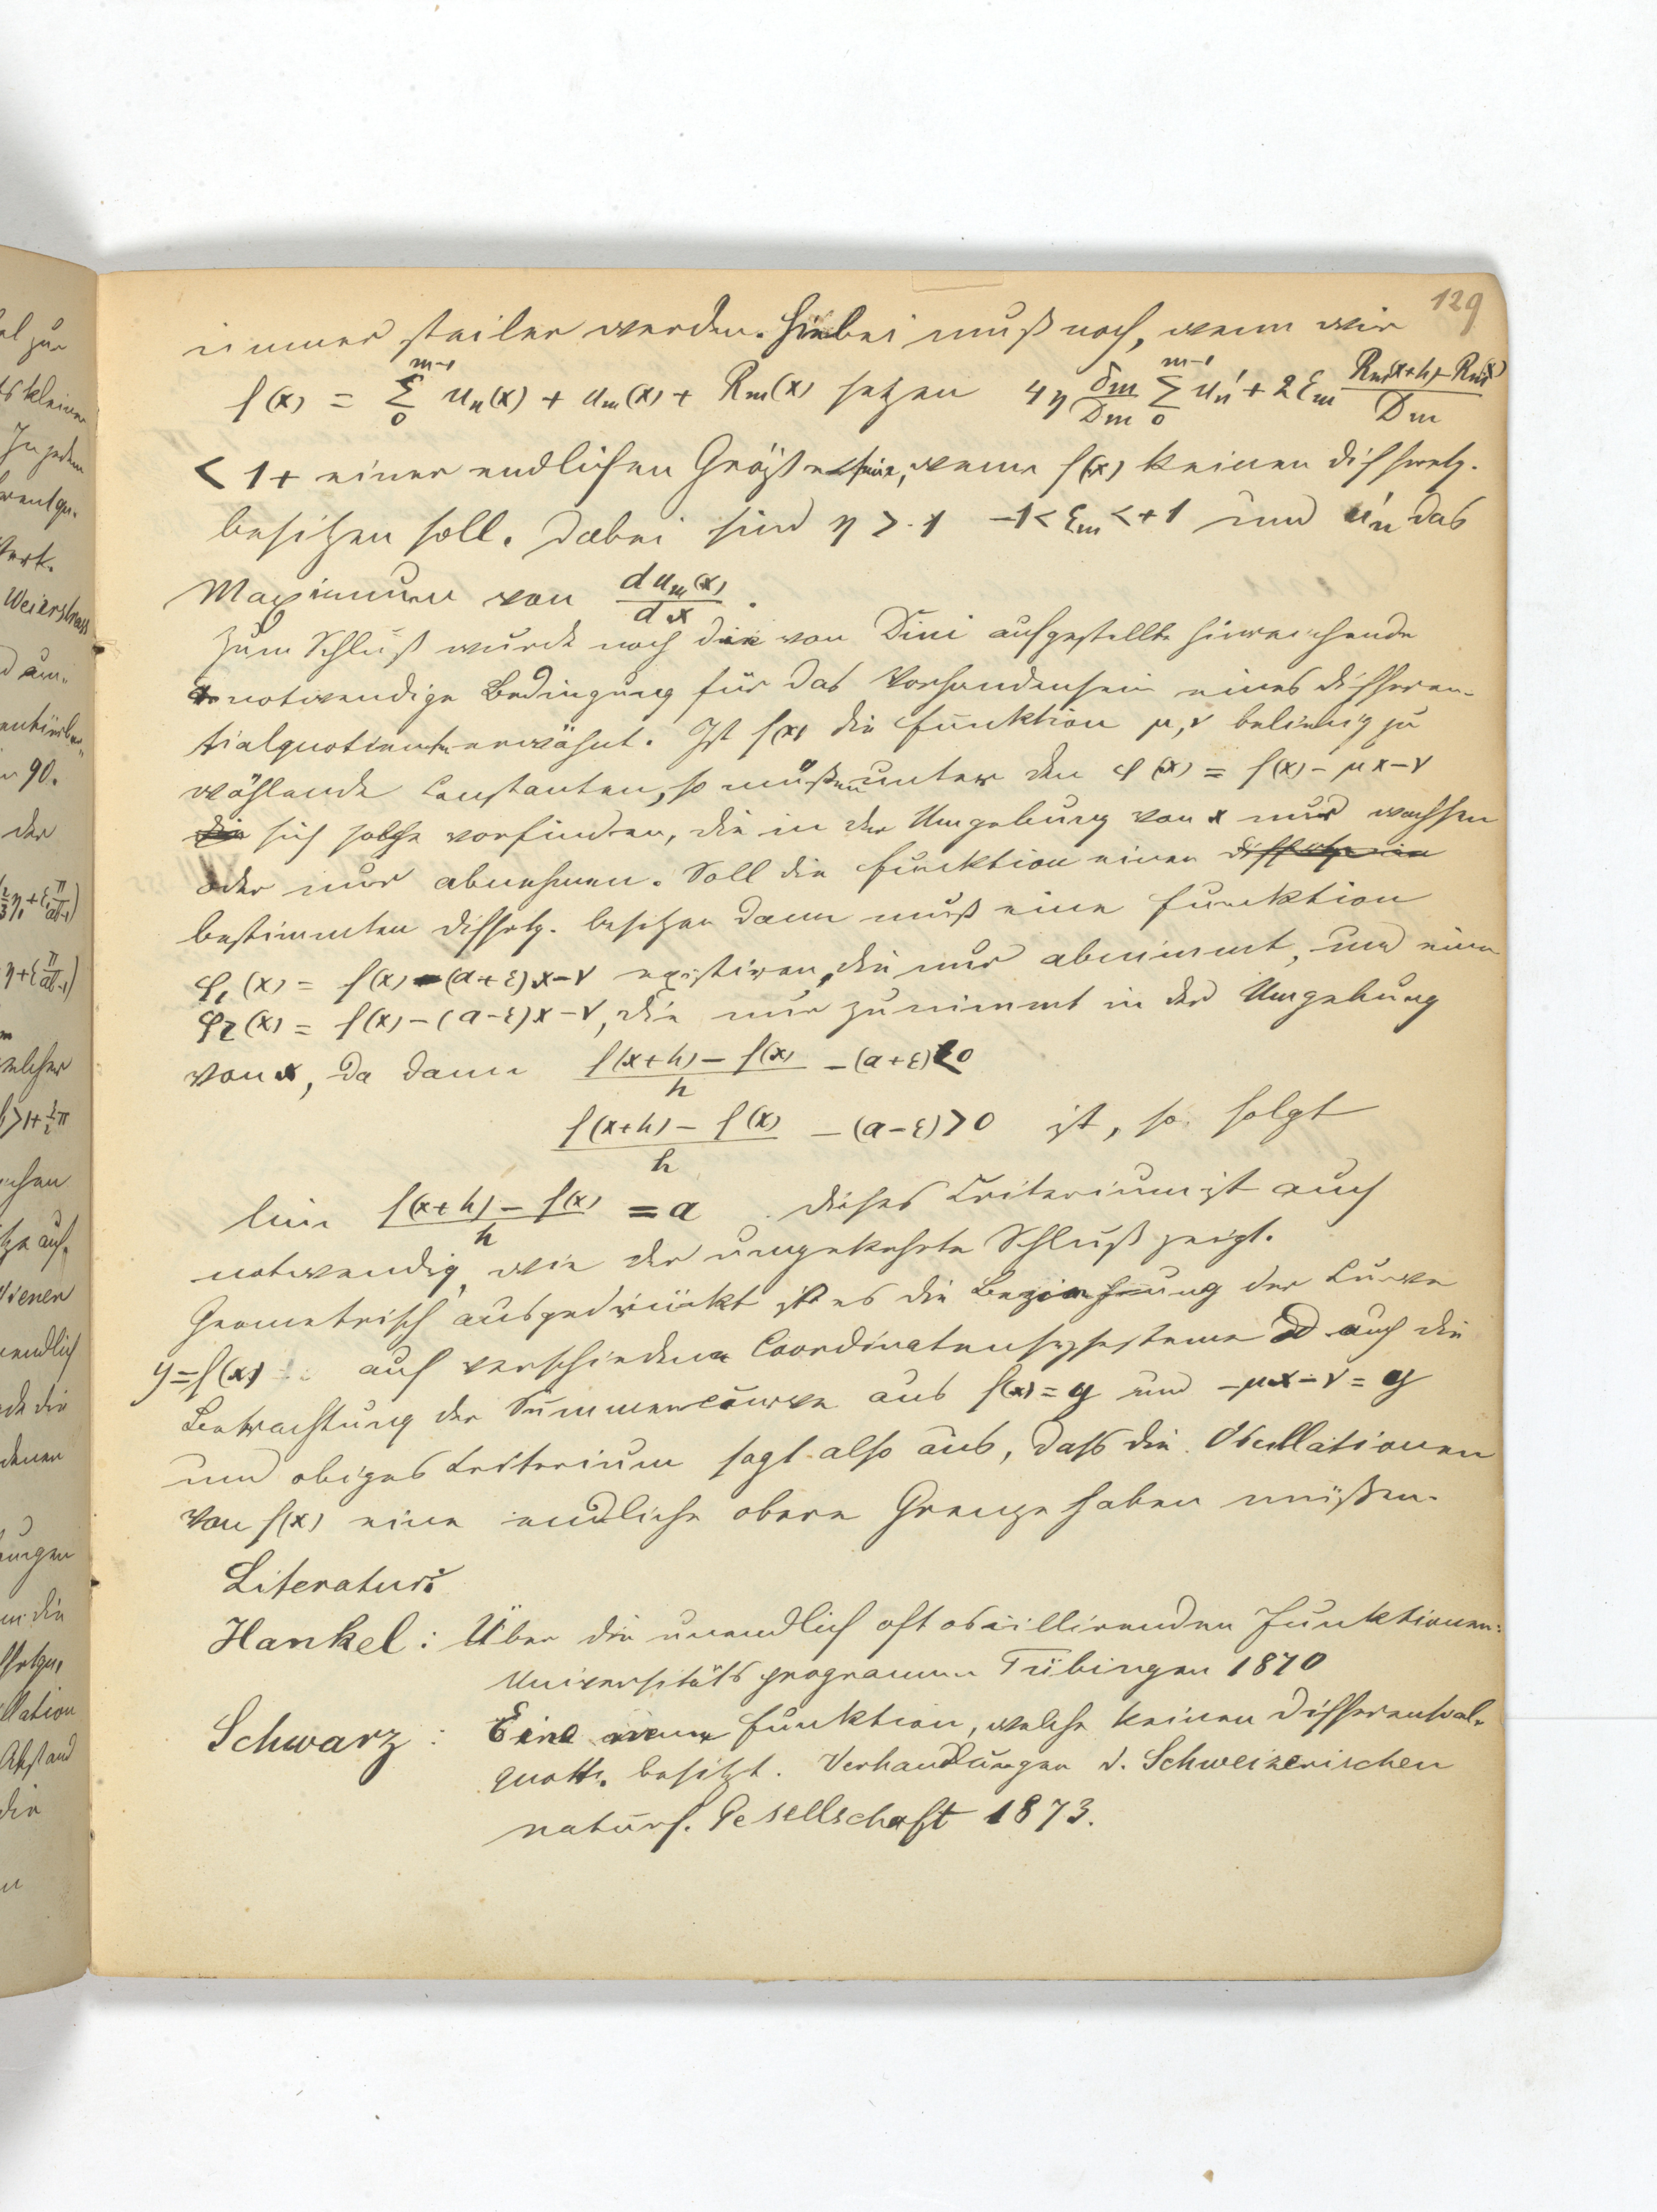 129
immer steiler werden. Hiebei muß noch, wenn wir
f(x) = Σ_0^{m-1} u_n(x) + u_m(x) + R_m(x) setzen 4η δ_m/D_m Σ_0^{m-1} u_n' + 2ε_m (R_m(x+h) - R_m(x))/D_m
< 1 + einer endlichen Größe sein, wenn f(x) keinen Diffrentq.
besitzen soll. Dabei sind η > 1 -1 < ε_m < +1 und u_n' das
Maximum von du_m(x)/dx.
Zum Schluß wurde noch die von Dini aufgestellte hinreichende
notwendige Bedingung für das Vorhandensein eines Differen-
tialquotienten erwähnt. Ist f(x) die Funktion μ, ν beliebig zu
wählende Constanten, so müßen unter den φ(x) = f(x) - μx - ν
die sich solche vorfinden, die in der Umgebung von x nur wachsen
oder nur abnehmen. Soll die Funktion einen
bestimmten Diffqtz. besitzen dann muß eine Funktion
φ_1(x) = f(x) - (a+ε)x - ν existiren, die nur abnimmt, und eine
φ_2(x) = f(x) - (a-ε)x - ν, die nur zunimmt in der Umgebung
von x, da dann (f(x+h) - f(x))/h - (a+ε) < 0
(f(x+h) - f(x))/h - (a-ε) > 0 ist, so folgt
lim (f(x+h) - f(x))/h = a. Dieses Criterium ist auch
notwendig, wie der umgekehrte Schluß zeigt.
Geometrisch ausgedrückt ist es die Beziehung der Curve
y = f(x) auf verschiedene Coordinatensysteme od auch die
Betrachtung der Summencurve aus f(x) = y und -μx - ν = y
und obiges Criterium sagt also aus, dass die Oscillationen
von f(x) eine endliche obere Grenze haben müßen.
Literatur:
Hankel: Über die unendlich oft oscillirenden Funktionen:
Universitätsprogramm Tübingen 1870
Schwarz: Eine Funktion, welche keinen Differential-
quott. besitzt. Verhandlungen d. Schweizerischen
naturf. Gesellschaft 1873.